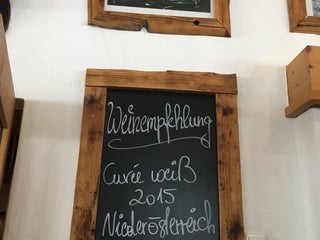 Weinempfehlung
Cuvée weiß
2015
Niederösterreich